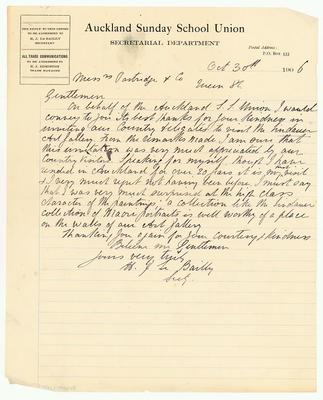 Auckland Sunday School Union
SECRETARIAL DEPARTMENT
ALL TRADE COMMUNICATIONS
TO BE ADDRESSED TO
TRADE MANAGER
Postal Address:
P.O. Box
Oct 30th 1906
Messrs Partridge & Co
Queen St.
Gentlemen
On behalf of the Auckland S. S. Union I want
convey to you its best thanks for your kindness in
inviting our Country delegates to visit the Lindauer
Art Gallery. From the remarks made I am sure that
this invitation was very much appreciated by our
Country Visitors. Speaking for myself, though I have
resided in Auckland for over 20 years it is my first visit
& I very much regret not having been before, I must say
that I was very much surprised at the high class
character of the paintings; a collection like the Lindauer
collection of Maori portraits is well worthy of a place
on the walls of our Art Gallery
Thanking you again for your courtesy & kindness
Believe me Gentlemen
Yours very truly
H. J. Le Bailly
Secy.